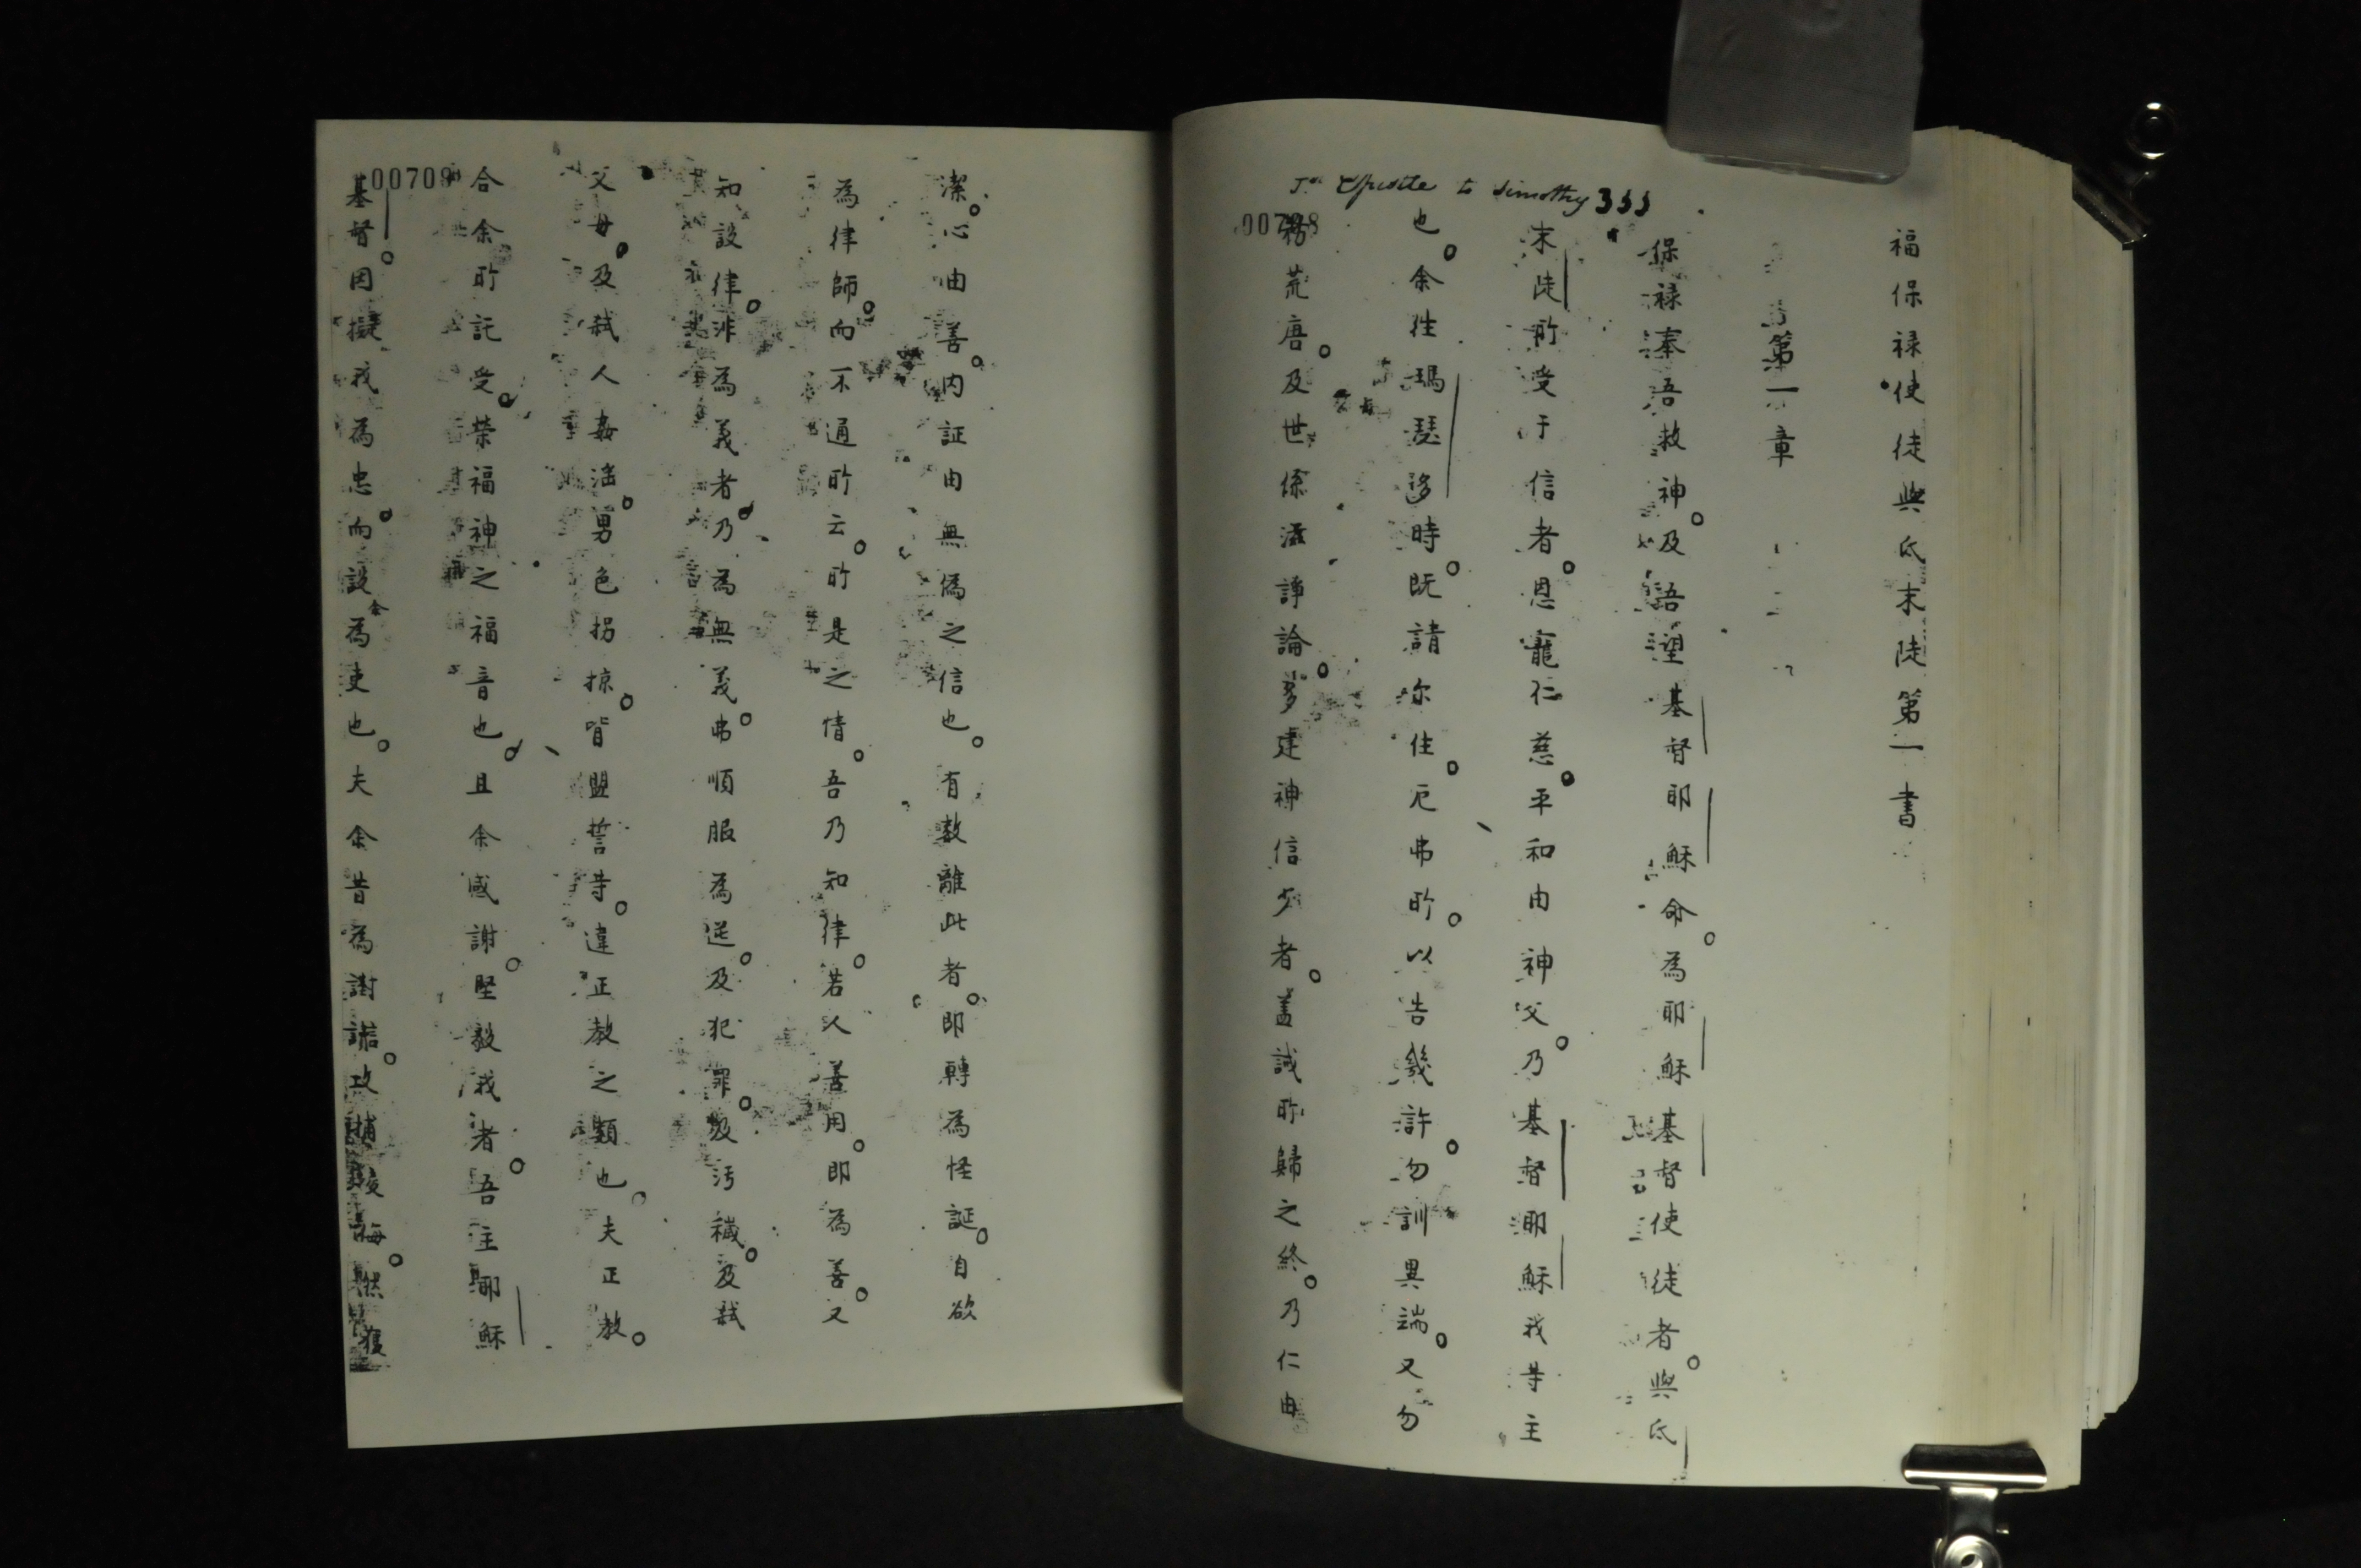 Jst Epistle to Timothy 333
00708
福保禄使徒與氐末陡第一書
第一章
保禄奉吾救神。及吾望基督耶穌命。為耶穌基督使徒者。與氐
末陡所受于信者。恩寵仁慈。平和由神父。乃基督耶穌我等主
也。余徃瑪瑟移時。既請你住。厄弗所。以告幾許。勿訓異端。又勿
務荒唐。及世係滋諍論。多建神信少者。盖誡所歸之終。乃仁由
潔。心由善。内証由無偽之信也。有数離此者。即轉為怪誕。自欲
為律師。而不通所云。所是之情。吾乃知律。若人善用。即為善。又
知設律。非為義者。乃為無義。弗順服為逆。及犯罪。及污穢。及弒
父母。及弒人姦滛。男色拐掠。背盟誓等。違正教之類也。夫正教。
合余所託受。榮福神之福音也。且余感謝。堅毅我者。吾主耶穌
00709
基督。因擬我為忠。而設余為吏也。夫余昔為謝謗。攻捕凌侮。然獲